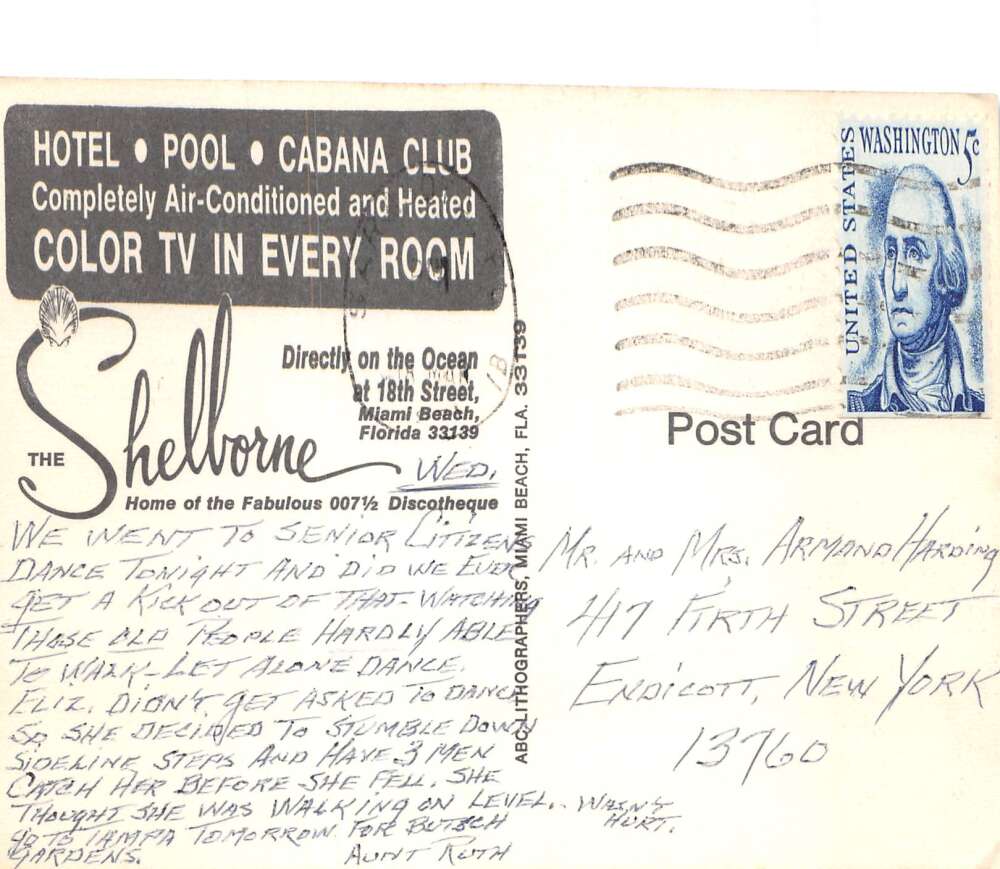 HOTEL • POOL • CABANA CLUB
Completely Air-Conditioned and Heated
COLOR TV IN EVERY ROOM
THE Shelborne
Directly on the Ocean
at 18th Street,
Miami Beach,
Florida 33139
Home of the Fabulous 007½ Discotheque
WED.
WE WENT TO SENIOR CITIZENS
DANCE TONIGHT AND DID WE EVER
GET A KICK OUT OF THAT-WATCHING
THOSE OLD PEOPLE HARDLY ABLE
TO WALK-LET ALONE DANCE.
ELIZ. DIDN'T GET ASKED TO DANCE
SO SHE DECIDED TO STUMBLE DOWN
SIDELINE STEPS AND HAVE 3 MEN
CATCH HER BEFORE SHE FELL. SHE
THOUGHT SHE WAS WALKING ON LEVEL. - WASN'T
HURT.
GO TO TAMPA TOMORROW FOR BUTSCH
GARDENS.
AUNT RUTH
ABC LITHOGRAPHERS, MIAMI BEACH, FLA. 33139
UNITED STATES
WASHINGTON 5c
Post Card
MR. AND MRS. ARMOND HARDING
417 FIRTH STREET
ENDICOTT, NEW YORK
13760